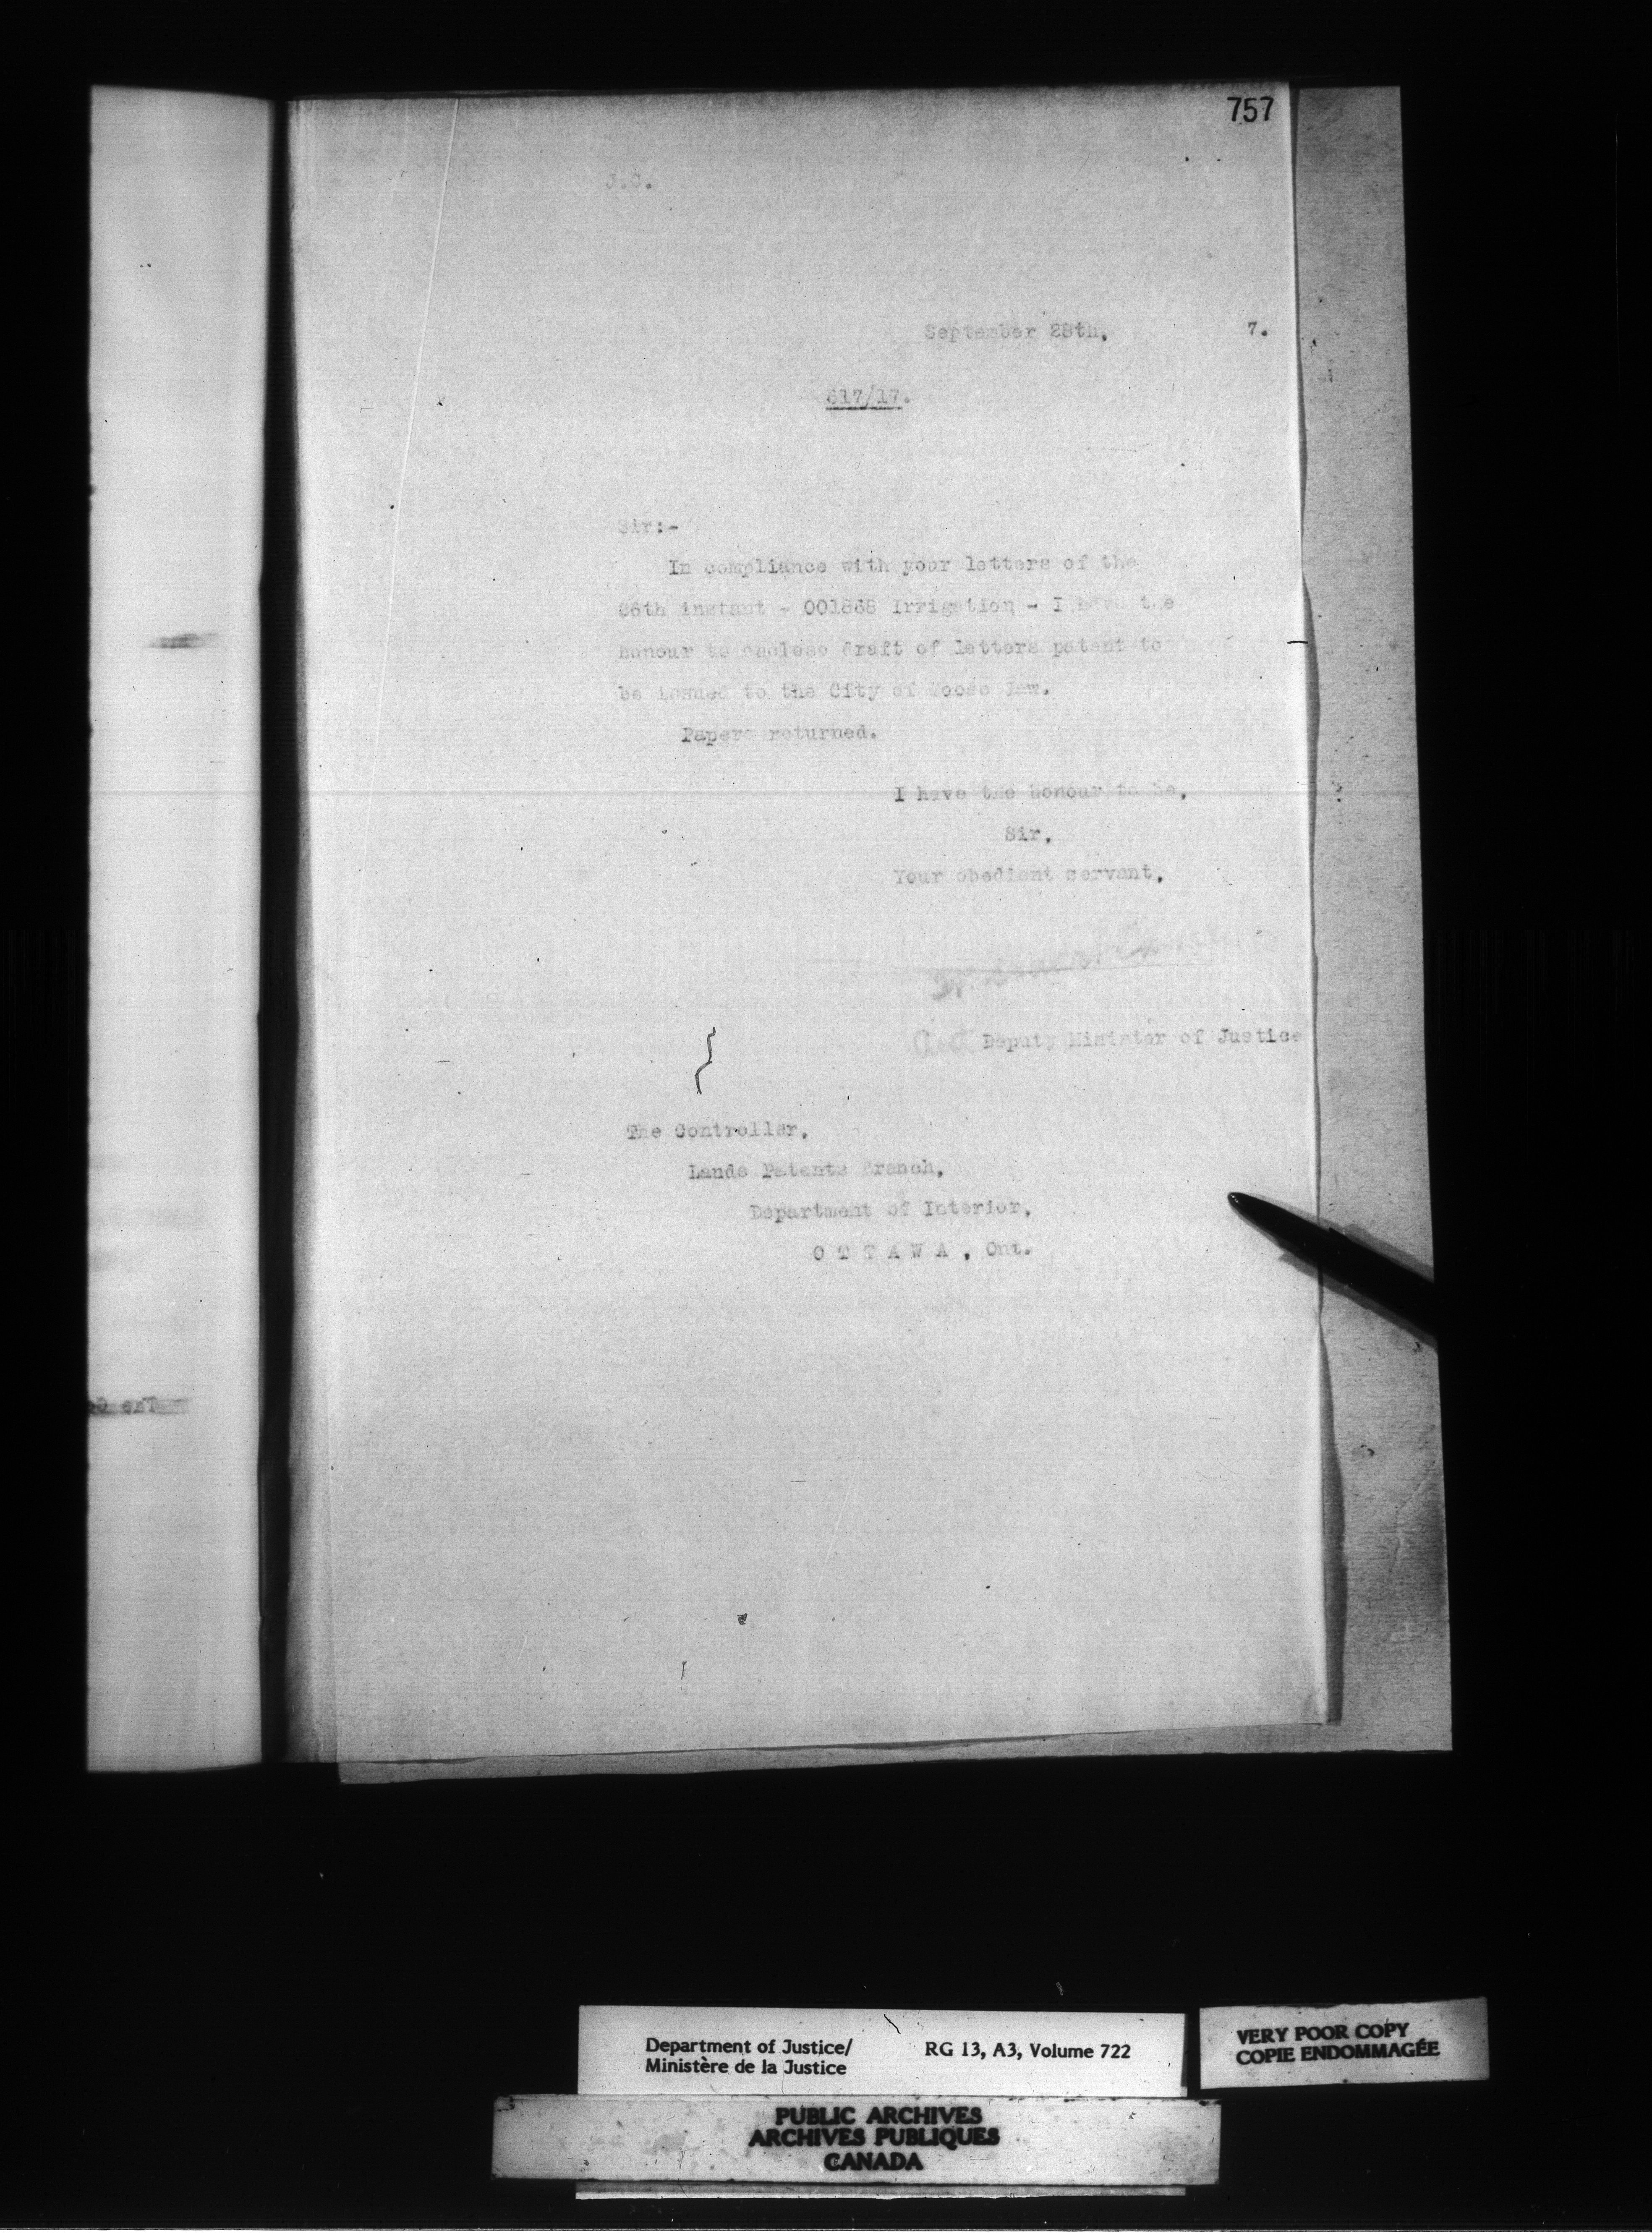 757
J.C.
September 28th, 7.
617/17.
Sir:-
In compliance with your letters of the
26th instant - 001868 Irrigation - I have the
honour to enclose draft of letters patent to
be issued to the City of Moose Jaw.
Papers returned.
I have the honour to be,
Sir,
Your obedient servant,
Deputy Minister of Justice
The Controller,
Lands Patents Branch,
Department of Interior,
O T T A W A , Ont.
Department of Justice/ RG 13, A3, Volume 722
Ministère de la Justice
VERY POOR COPY
COPIE ENDOMMAGÉE
PUBLIC ARCHIVES
ARCHIVES PUBLIQUES
CANADA